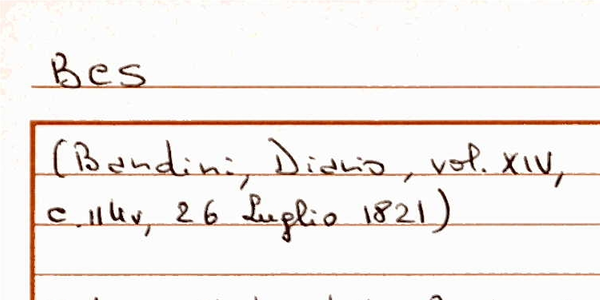 Bes
(Bandini, Diario, vol. XIV,
c. 114v, 26 Luglio 1821)